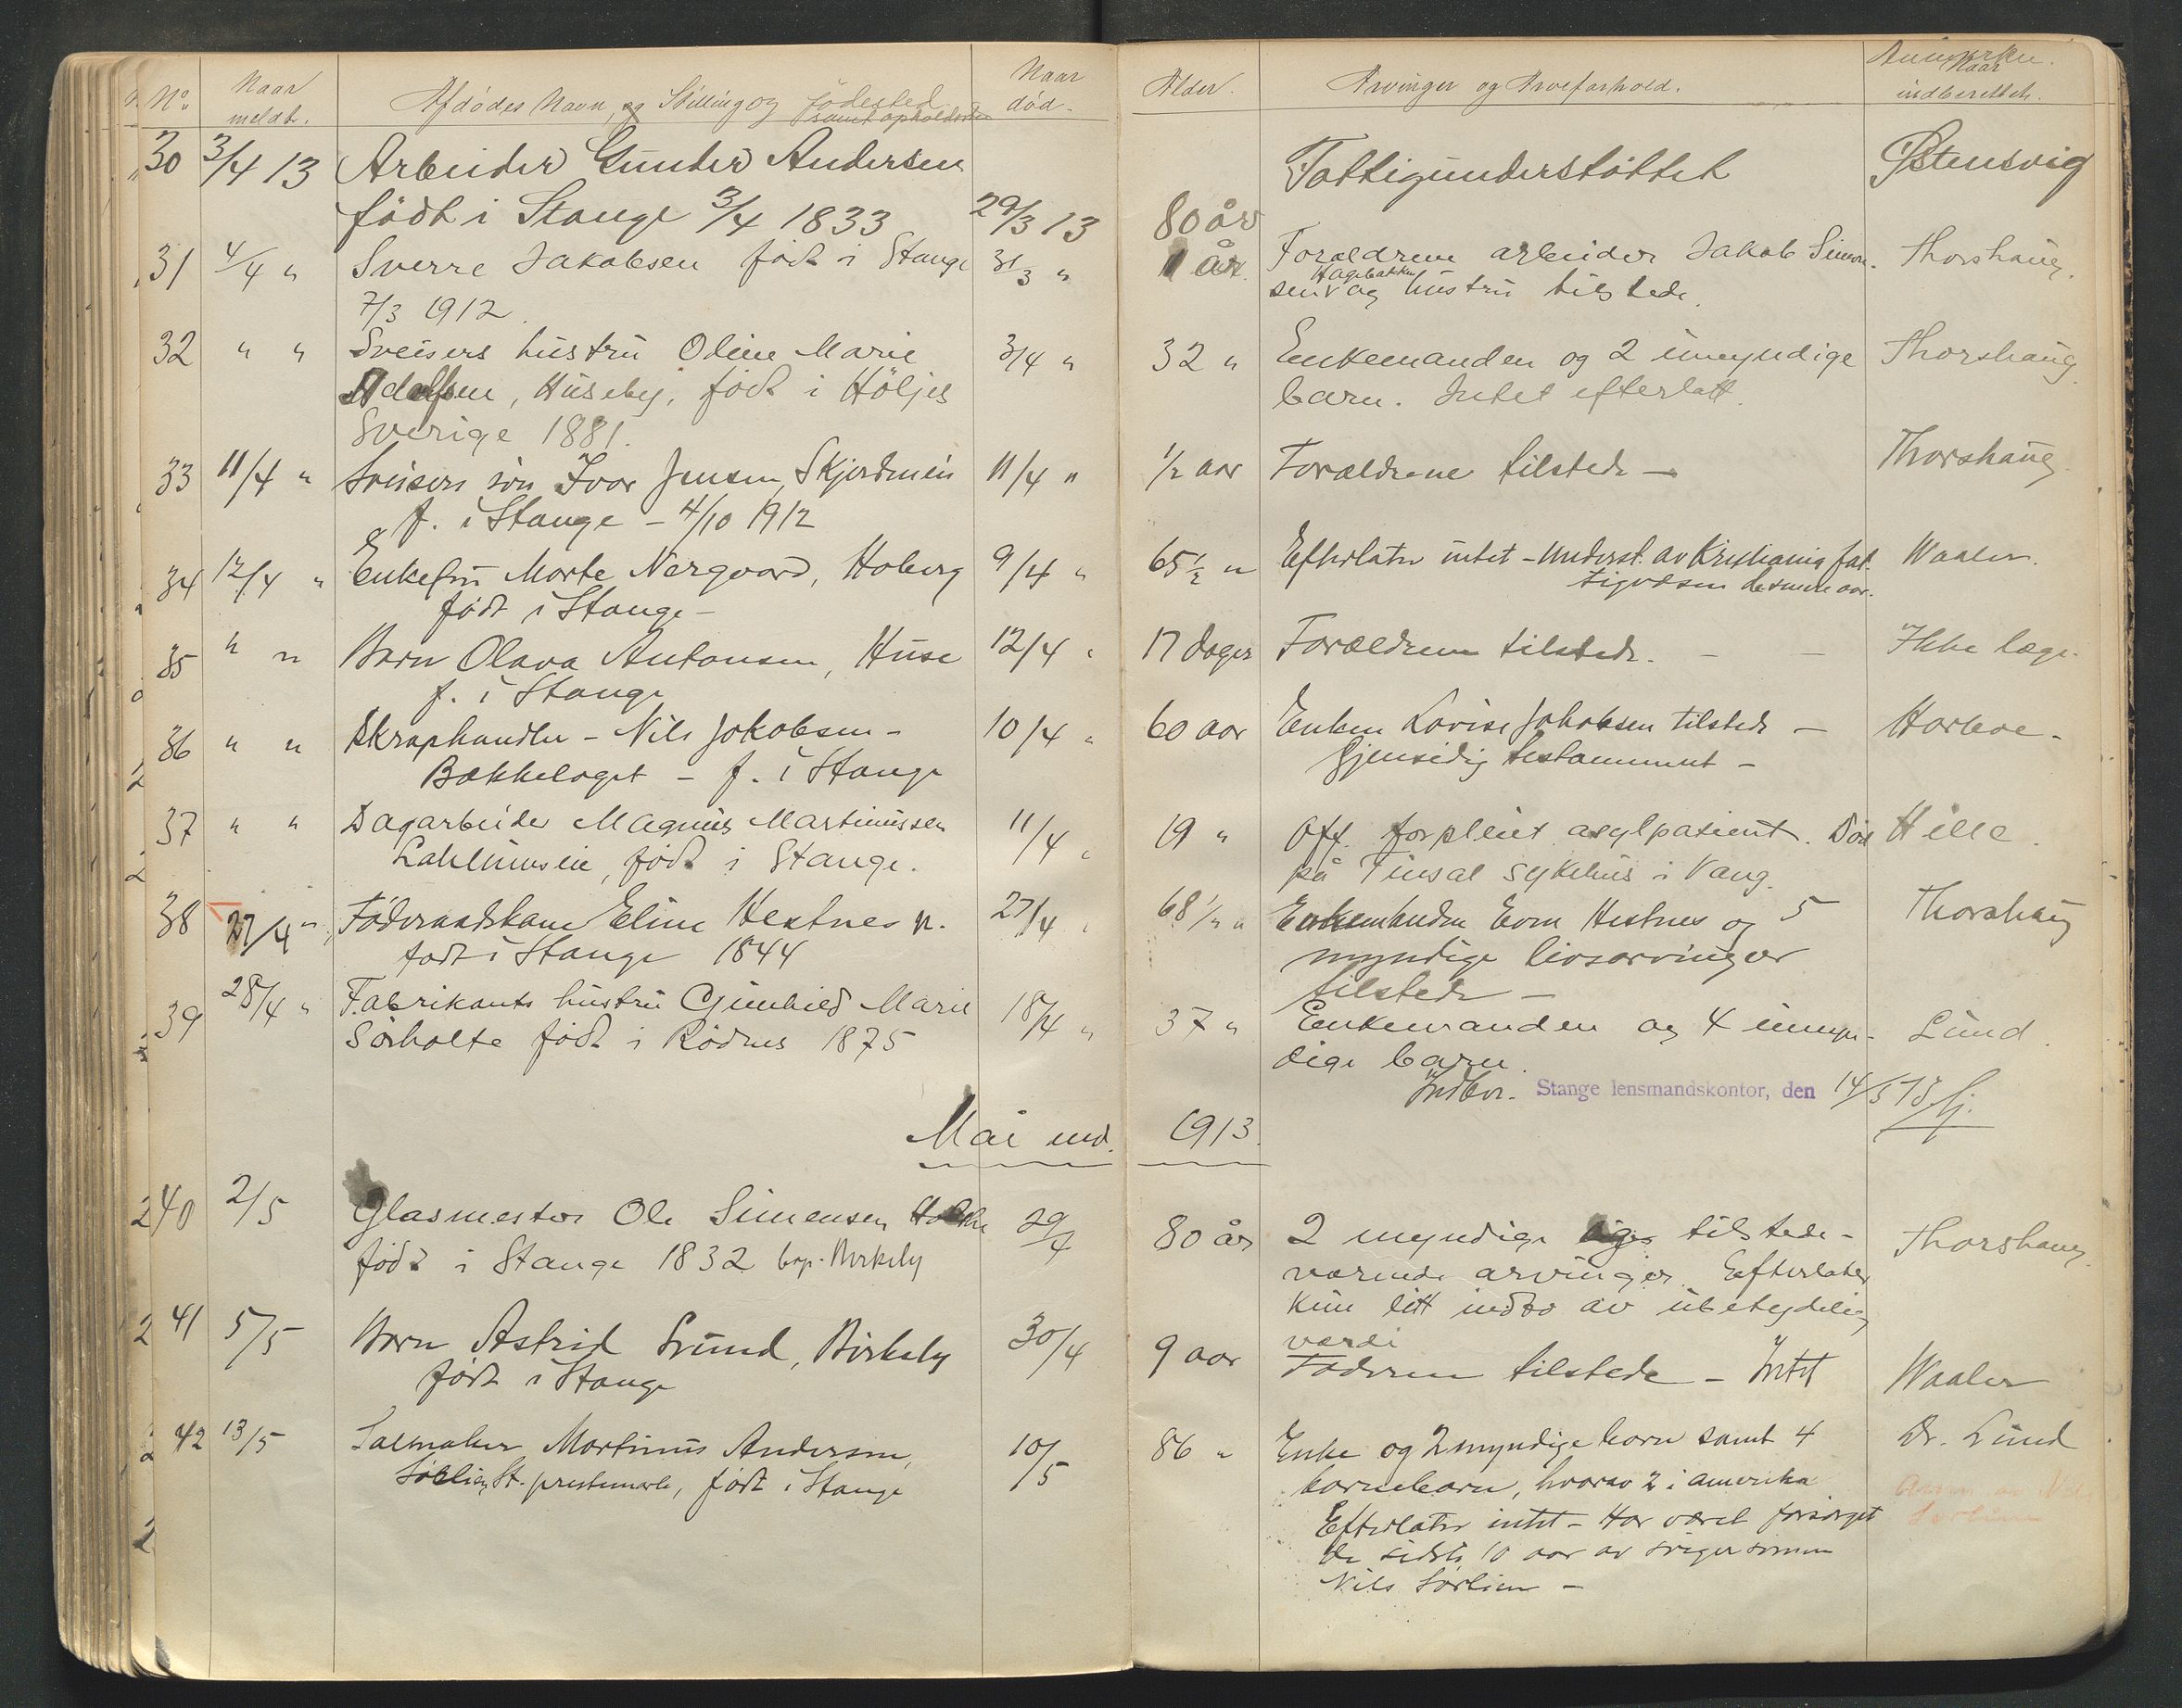 No. Naar meldt. Afdødes Navn, og Stilling og Fødested samt opholdssted Naar død. Alder. Arvinger og Arveforhold. Anmerkn. Naar indberettet.
30 3/4 13 Arbeider Gunder Andersen Fattigunderstøttet Østensvig
født i Stange 3/4 1833 29/3 13 80 år
31 4/4 " Sverre Jakobsen født i Stange 31/3 " 1 år. Forældrene arbeider Jakob Simen- Thorshaug.
7/3 1912. sen Hagebakken og hustru tilstede.
32 " " Sveisers hustru Oline Marie 3/4 " 32 " Enkemanden og 2 umyndige Thorshaug.
Adolfsen, Huseby, født i Höljes barn. Intet efterlatt.
Sverige 1881.
33 11/4 " Sveisers søn Ivar Jensen, Skjerdmein 11/4 " 1/2 aar Forældrene tilstede — Thorshaug.
f. i Stange - 4/10 1912
34 12/4 " Enkefru Marte Nergaard, Hoberg 9/4 " 65 1/2 " Efterlater intet - Underst. av Kristiania fat- Waaler.
født i Stange - tigvæsen de senere aar.
35 " " Barn Olava Antonsen, Huse 12/4 " 17 dager Forældrene tilstede. — — Ikke læge.
f. i Stange
36 " " Skraphandler - Nils Jakobsen - 10/4 " 60 aar Enken Lovise Jakobsen tilstede — Harboe -
Bækkelaget - f. i Stange Gjensidig testamment -
37 " " Dagarbeider Magnus Martinussen 11/4 " 19 " Off. forpleiet asylpasient. Død Hille.
Lahlumseie, født i Stange. på Finsal sykehus i Vang.
38 27/4 " Føderaadskone Eline Hestnes n. 27/4 " 68 1/2 " Enkemanden Even Hestnes og 5 Thorshaug
født i Stange 1844 myndige livsarvinger
tilstede —
39 28/4 " Fabrikants hustru Gunhild Marie 18/4 " 37 " Enkemanden og 4 umyn- Lund.
Sørholte født i Rødnes 1875 dige barn.
Indber. Stange lensmandskontor, den 14/5 13
Mai md. 1913.
40 2/5 Glasmester Ole Simensen 29/4 80 år 2 myndige tilstede- Thorshaug.
født i Stange 1832 Birkely værende arvinger. Efterlater
kun litt indbo av ubetydelig
værdi
41 5/5 Barn Astrid Lund, Birkely 30/4 9 aar Faderen tilstede - Intet Waaler
født i Stange
42 13/5 Salmaker Martinus Andersen, 10/5 86 " Enke og 2 myndige barn samt 4 Dr. Lund
Sørlien, St. prestemark, født i Stange barnebarn, hvorav 2 i Amerika
Efterlater intet - Har været forsørget
de sidste 10 aar av svigersønnen
Nils Sørlien -